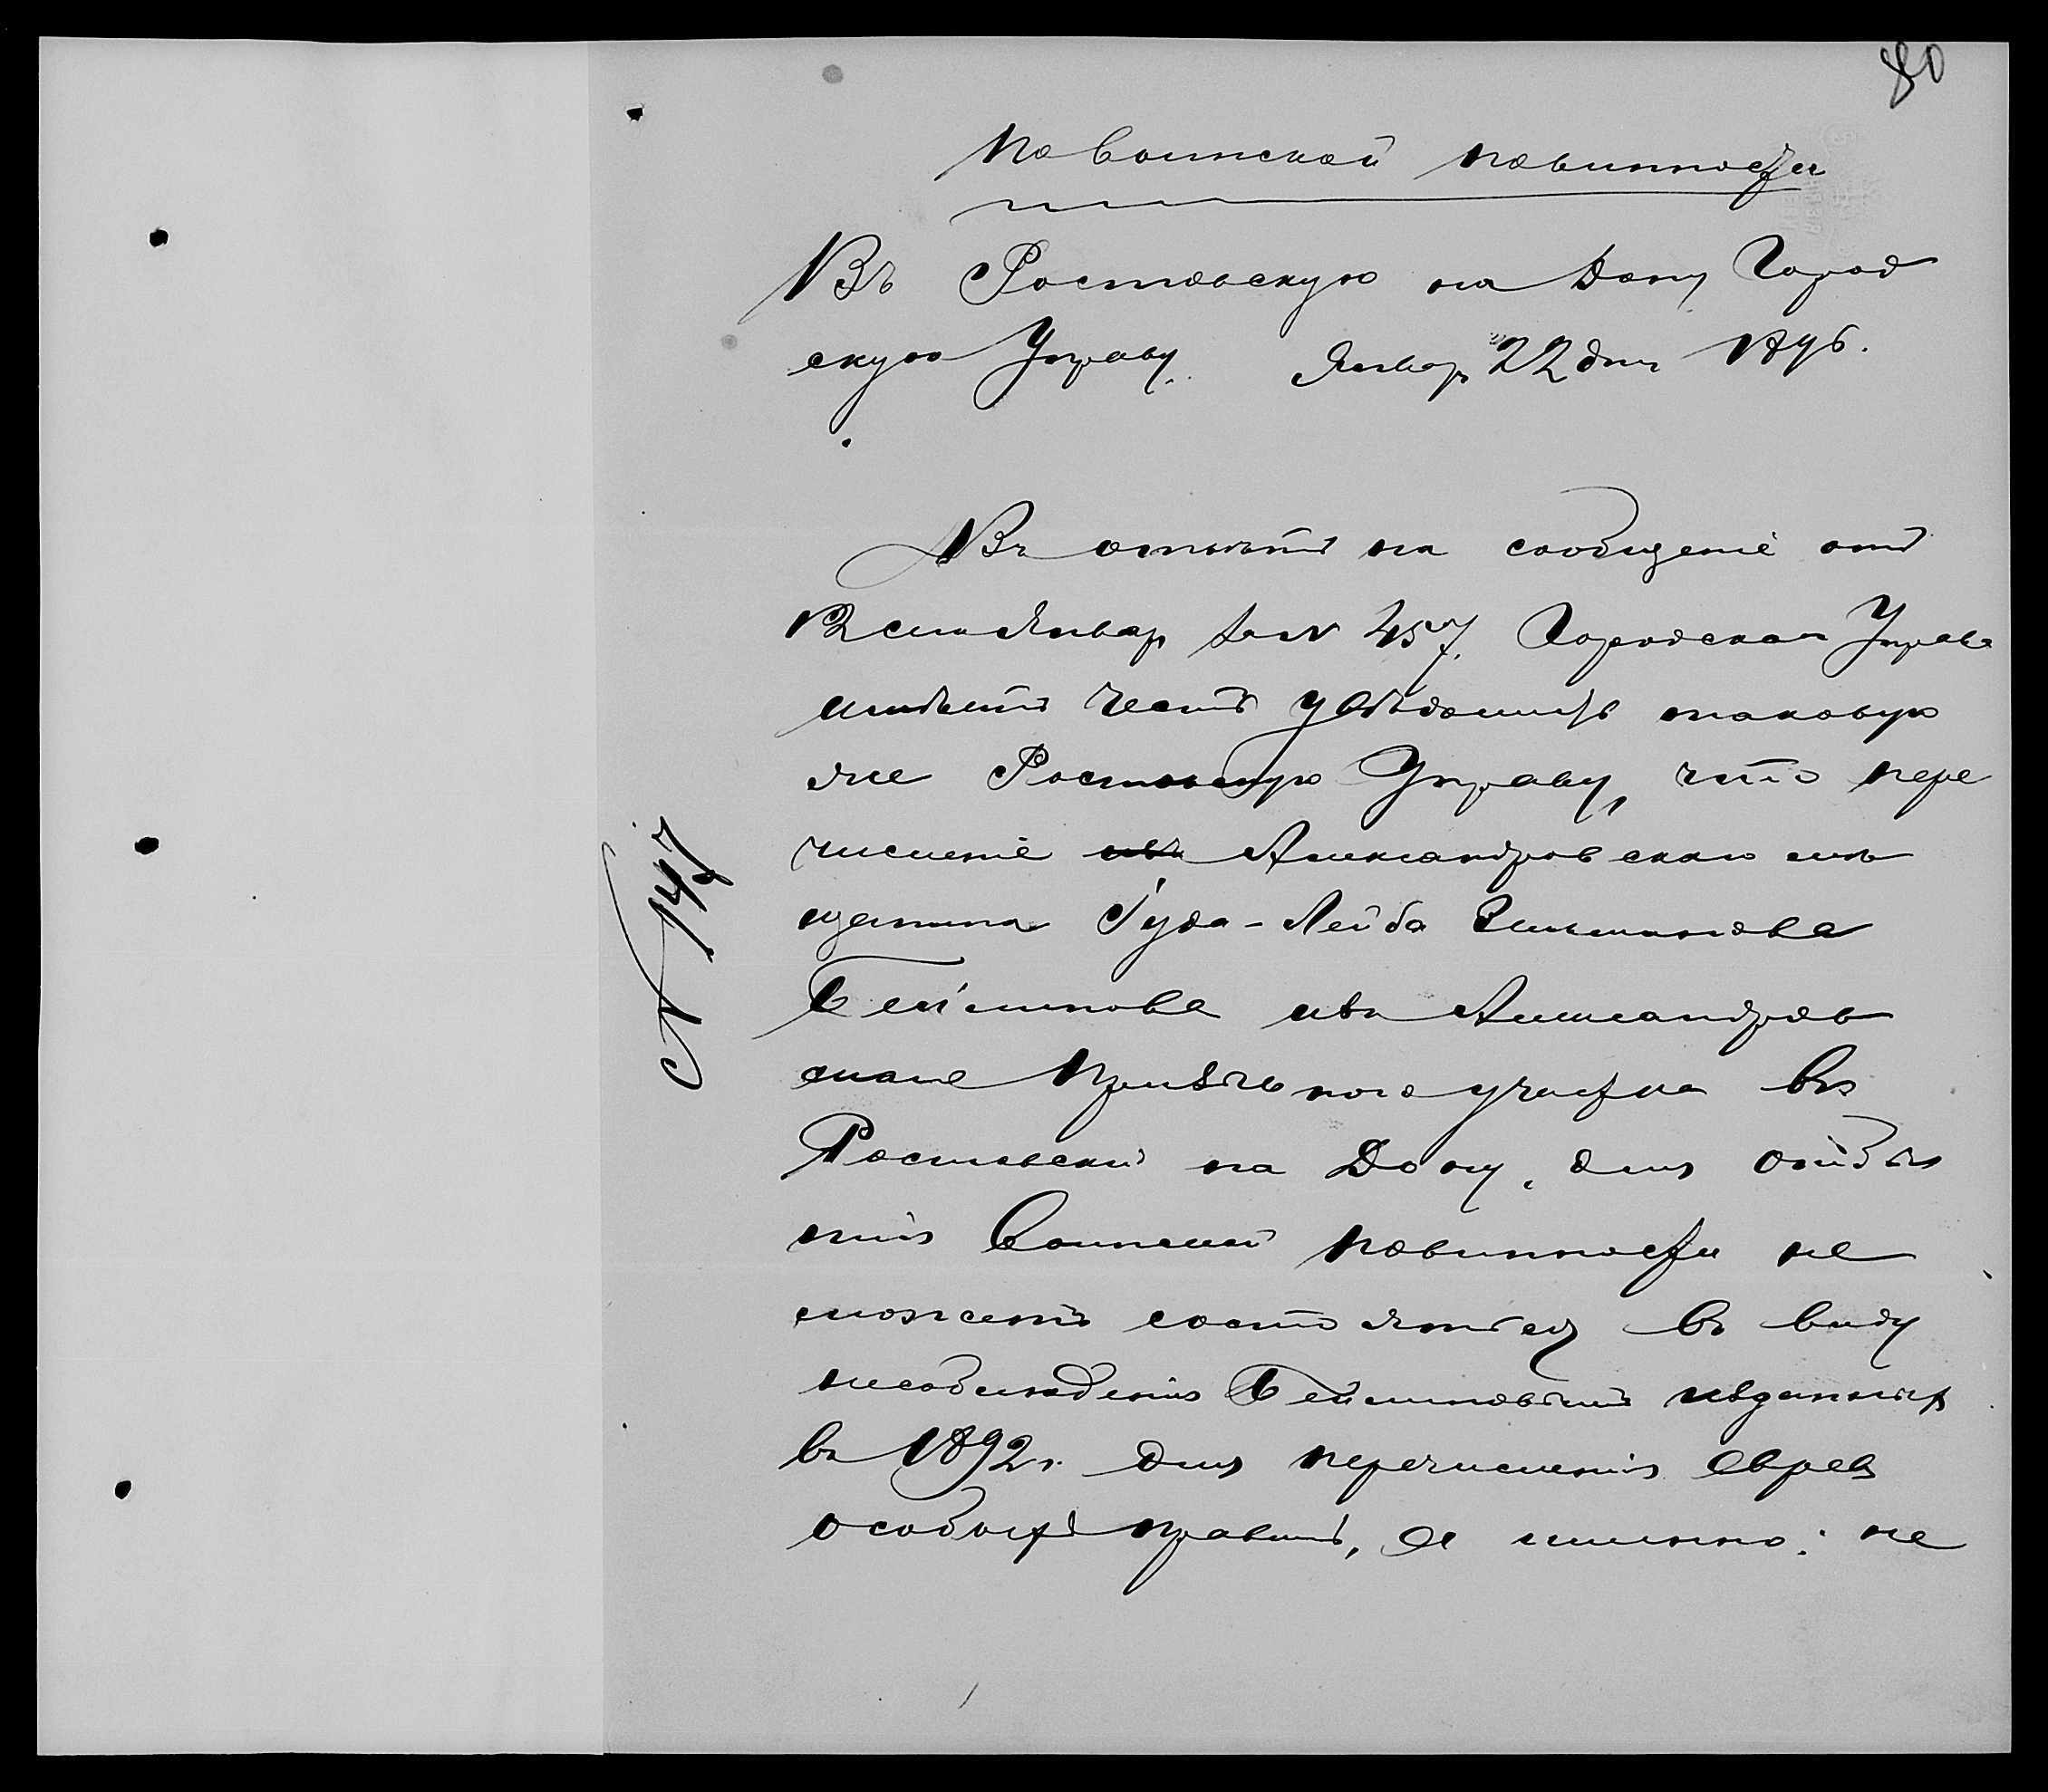 80
По воинской повинности
Въ Ростовскую на Дону Город
скую Управу. Январ 22 дня 1896.
Въ отвѣтъ на сообщеніе отъ
12 сего Январ за № 457, Городская Управа
имѣетъ честь увѣдомить таковую
же Ростовскую Управу, что пере
численіе изъ Александровскаго мѣ
щанина Гуда-Лейба Зельманова
Беймнова изъ Александров
скаго Призывного участка въ
Ростовскій на Дону, для отбы
нія воинской повинности не
можетъ состояться въ виду
несоблюденія Беймновымъ изданныхъ
въ 1892 г. для перечисленія евреевъ
особыхъ правилъ, а именно: не
№ 147